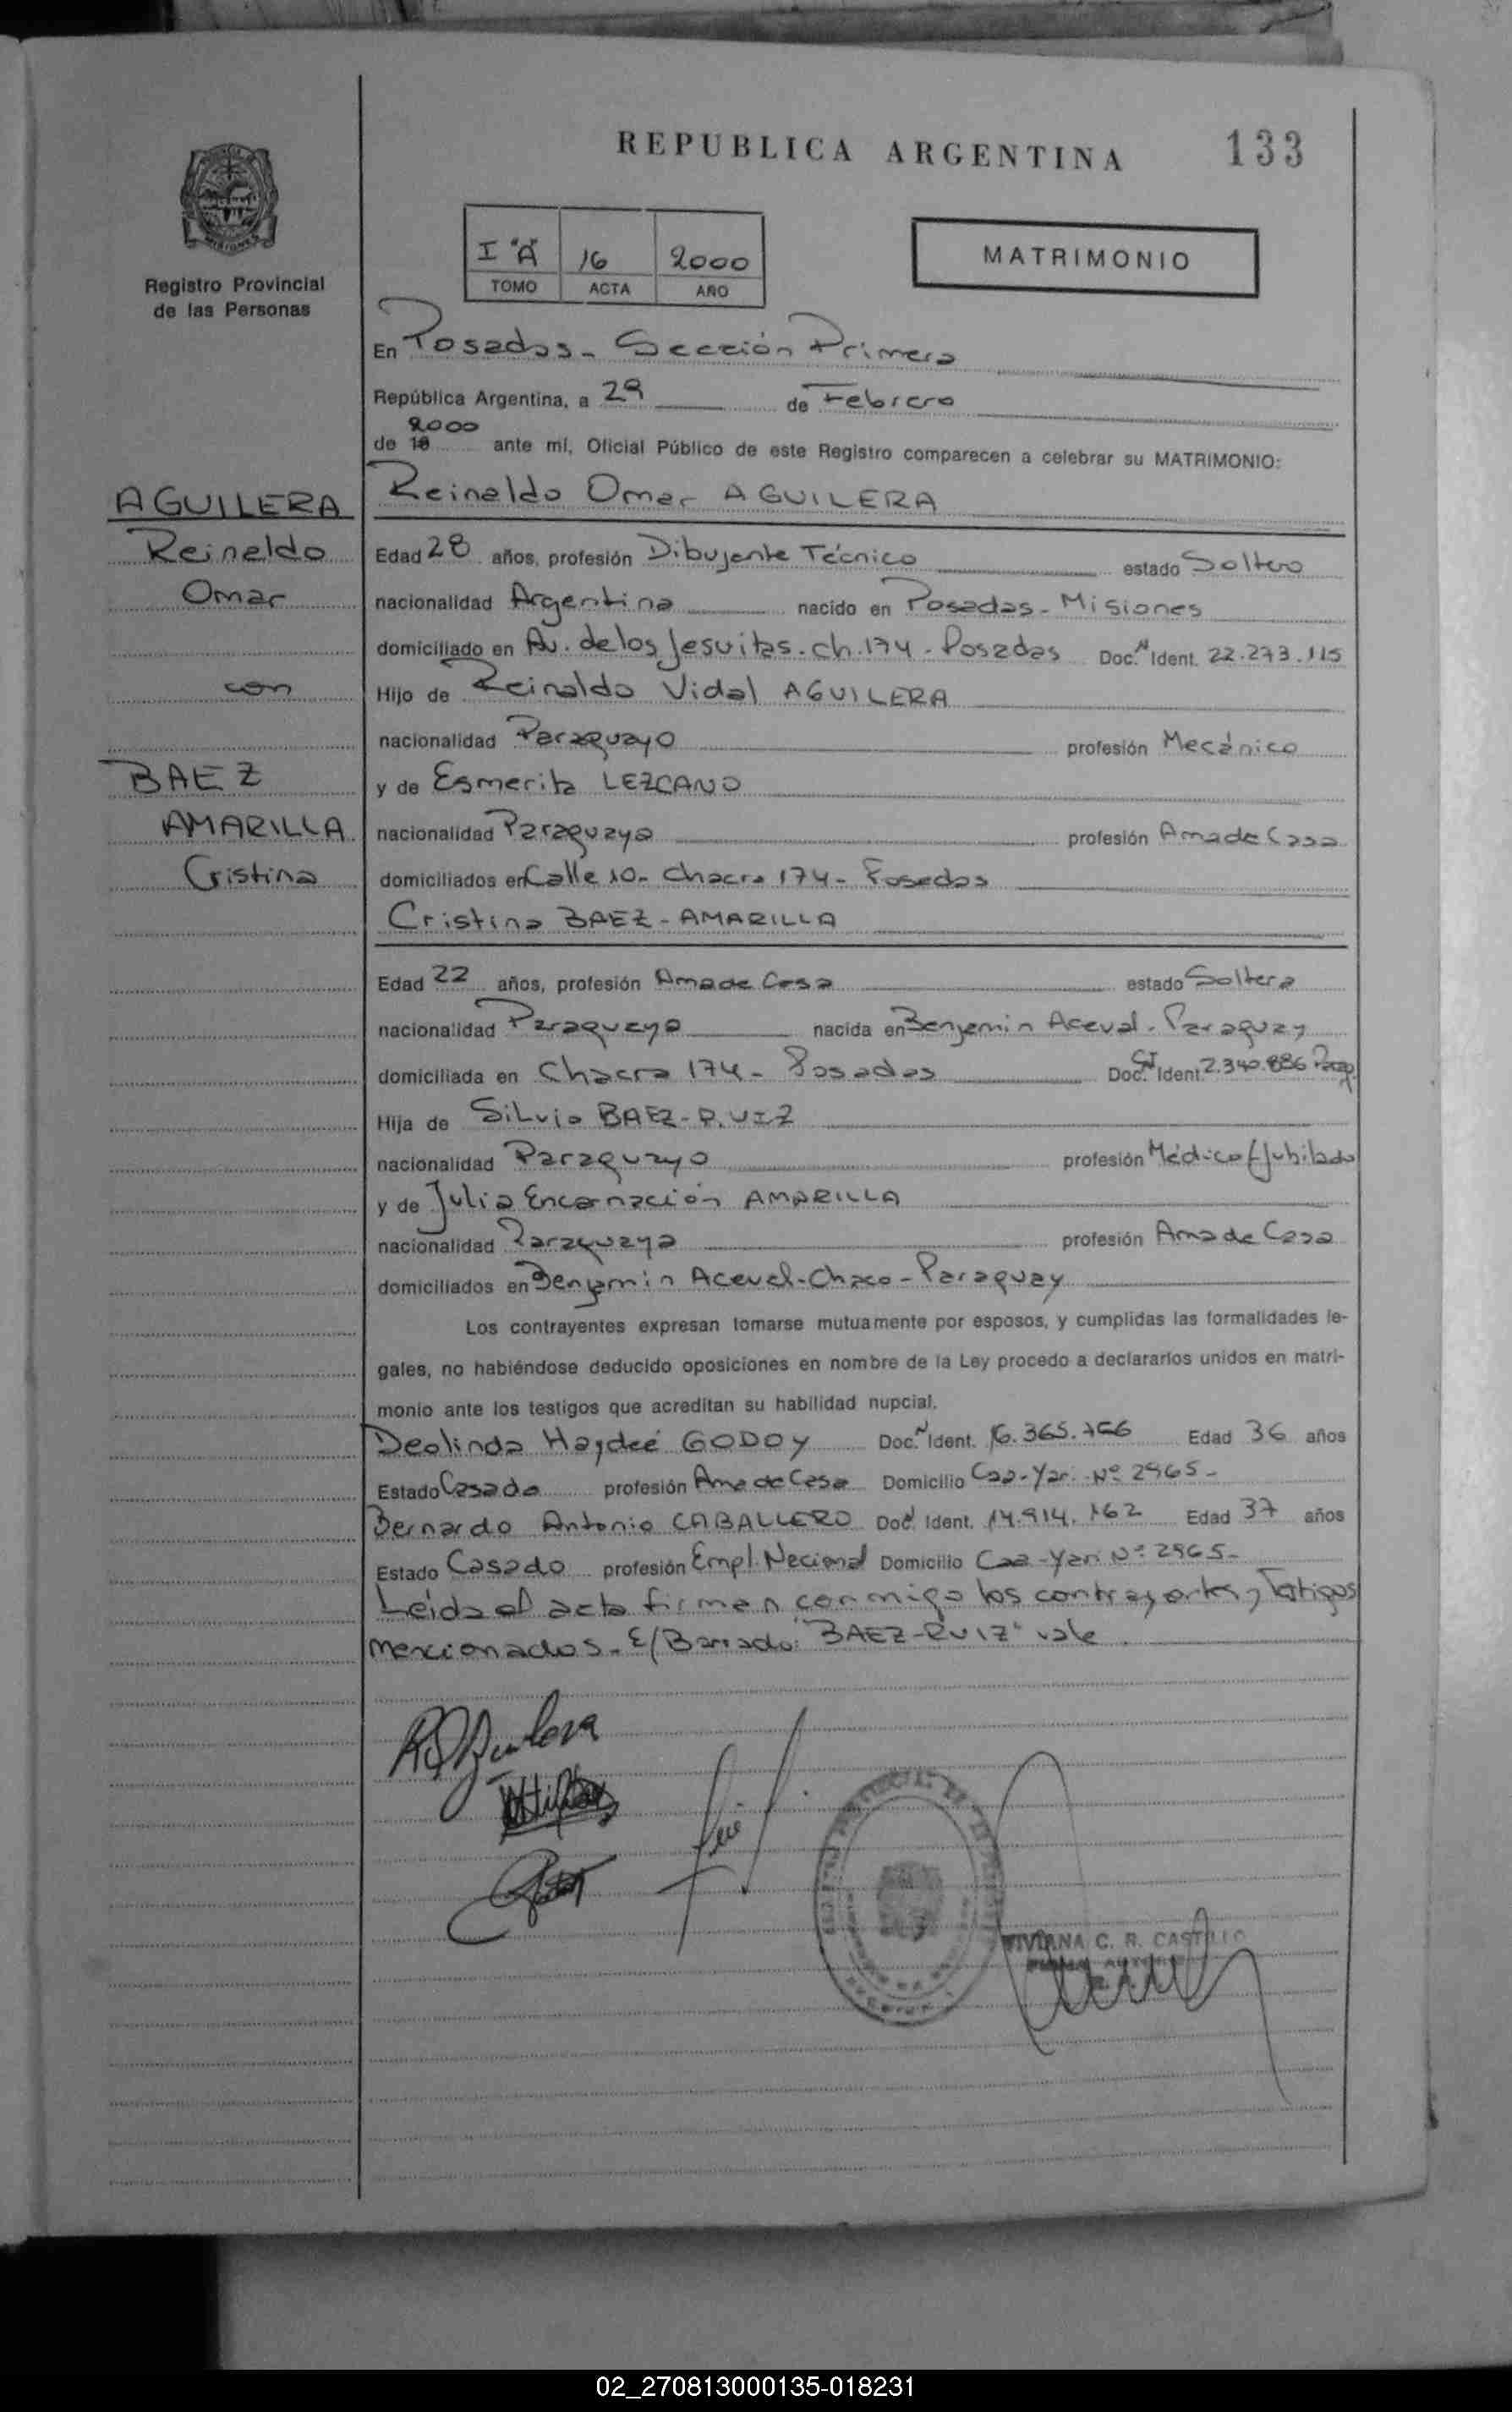 REPUBLICA ARGENTINA
133
Registro Provincial
de las Personas
I "A" 16 2000
TOMO ACTA AÑO
MATRIMONIO
En Posadas - Sección Primera
República Argentina, a 29 de Febrero
2000
de 19 ante mí, Oficial Público de este Registro comparecen a celebrar su MATRIMONIO:
AGUILERA
Reinaldo
Omar
con
BAEZ
AMARILLA
Cristina
Reinaldo Omar AGUILERA
Edad 28 años, profesión Dibujante Técnico estado Soltero
nacionalidad Argentina nacido en Posadas - Misiones
domiciliado en Av. de los Jesuitas. ch. 174 - Posadas Doc. N Ident. 22.273.115
Hijo de Reinaldo Vidal AGUILERA
nacionalidad Paraguayo profesión Mecánico
y de Esmerita LEZCANO
nacionalidad Paraguaya profesión Ama de Casa
domiciliados en Calle 10 - Chacra 174 - Posadas
Cristina BAEZ - AMARILLA
Edad 22 años, profesión Ama de Casa estado Soltera
nacionalidad Paraguaya nacida en Benjamin Aceval - Paraguay
domiciliada en Chacra 174 - Posadas Doc. CI Ident. 2.340.886 Parag.
Hija de Silvio BAEZ - RUIZ
nacionalidad Paraguayo profesión Médico (Jubilado
y de Julia Encarnación AMARILLA
nacionalidad Paraguaya profesión Ama de Casa
domiciliados en Benjamin Aceval - Chaco - Paraguay
Los contrayentes expresan tomarse mutuamente por esposos, y cumplidas las formalidades le-
gales, no habiéndose deducido oposiciones en nombre de la Ley procedo a declararlos unidos en matri-
monio ante los testigos que acreditan su habilidad nupcial.
Deolinda Haydeé GODOY Doc. N Ident. 16.365.766 Edad 36 años
Estado Casada profesión Ama de Casa Domicilio Caa-Yari - Nº 2965 -
Bernardo Antonio CABALLERO Doc. Ident. 14.914.162 Edad 37 años
Estado Casado profesión Empl. Nacional Domicilio Caa-Yari Nº 2965 -
Leida el acta firman conmigo los contrayentes y Testigos
mencionados - E/Borrado: "BAEZ-RUIZ" vale
VIVIANA C. R. CASTILLO
02_270813000135-018231